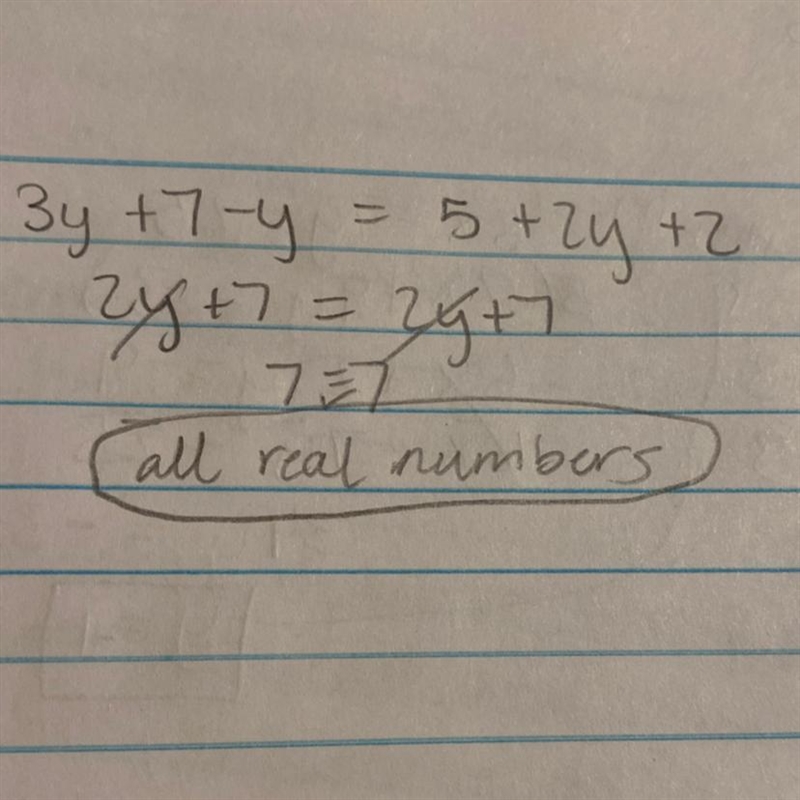 3y + 7 - y = 5 + 2y + 2
2y + 7 = 2y + 7
7 = 7
all real numbers